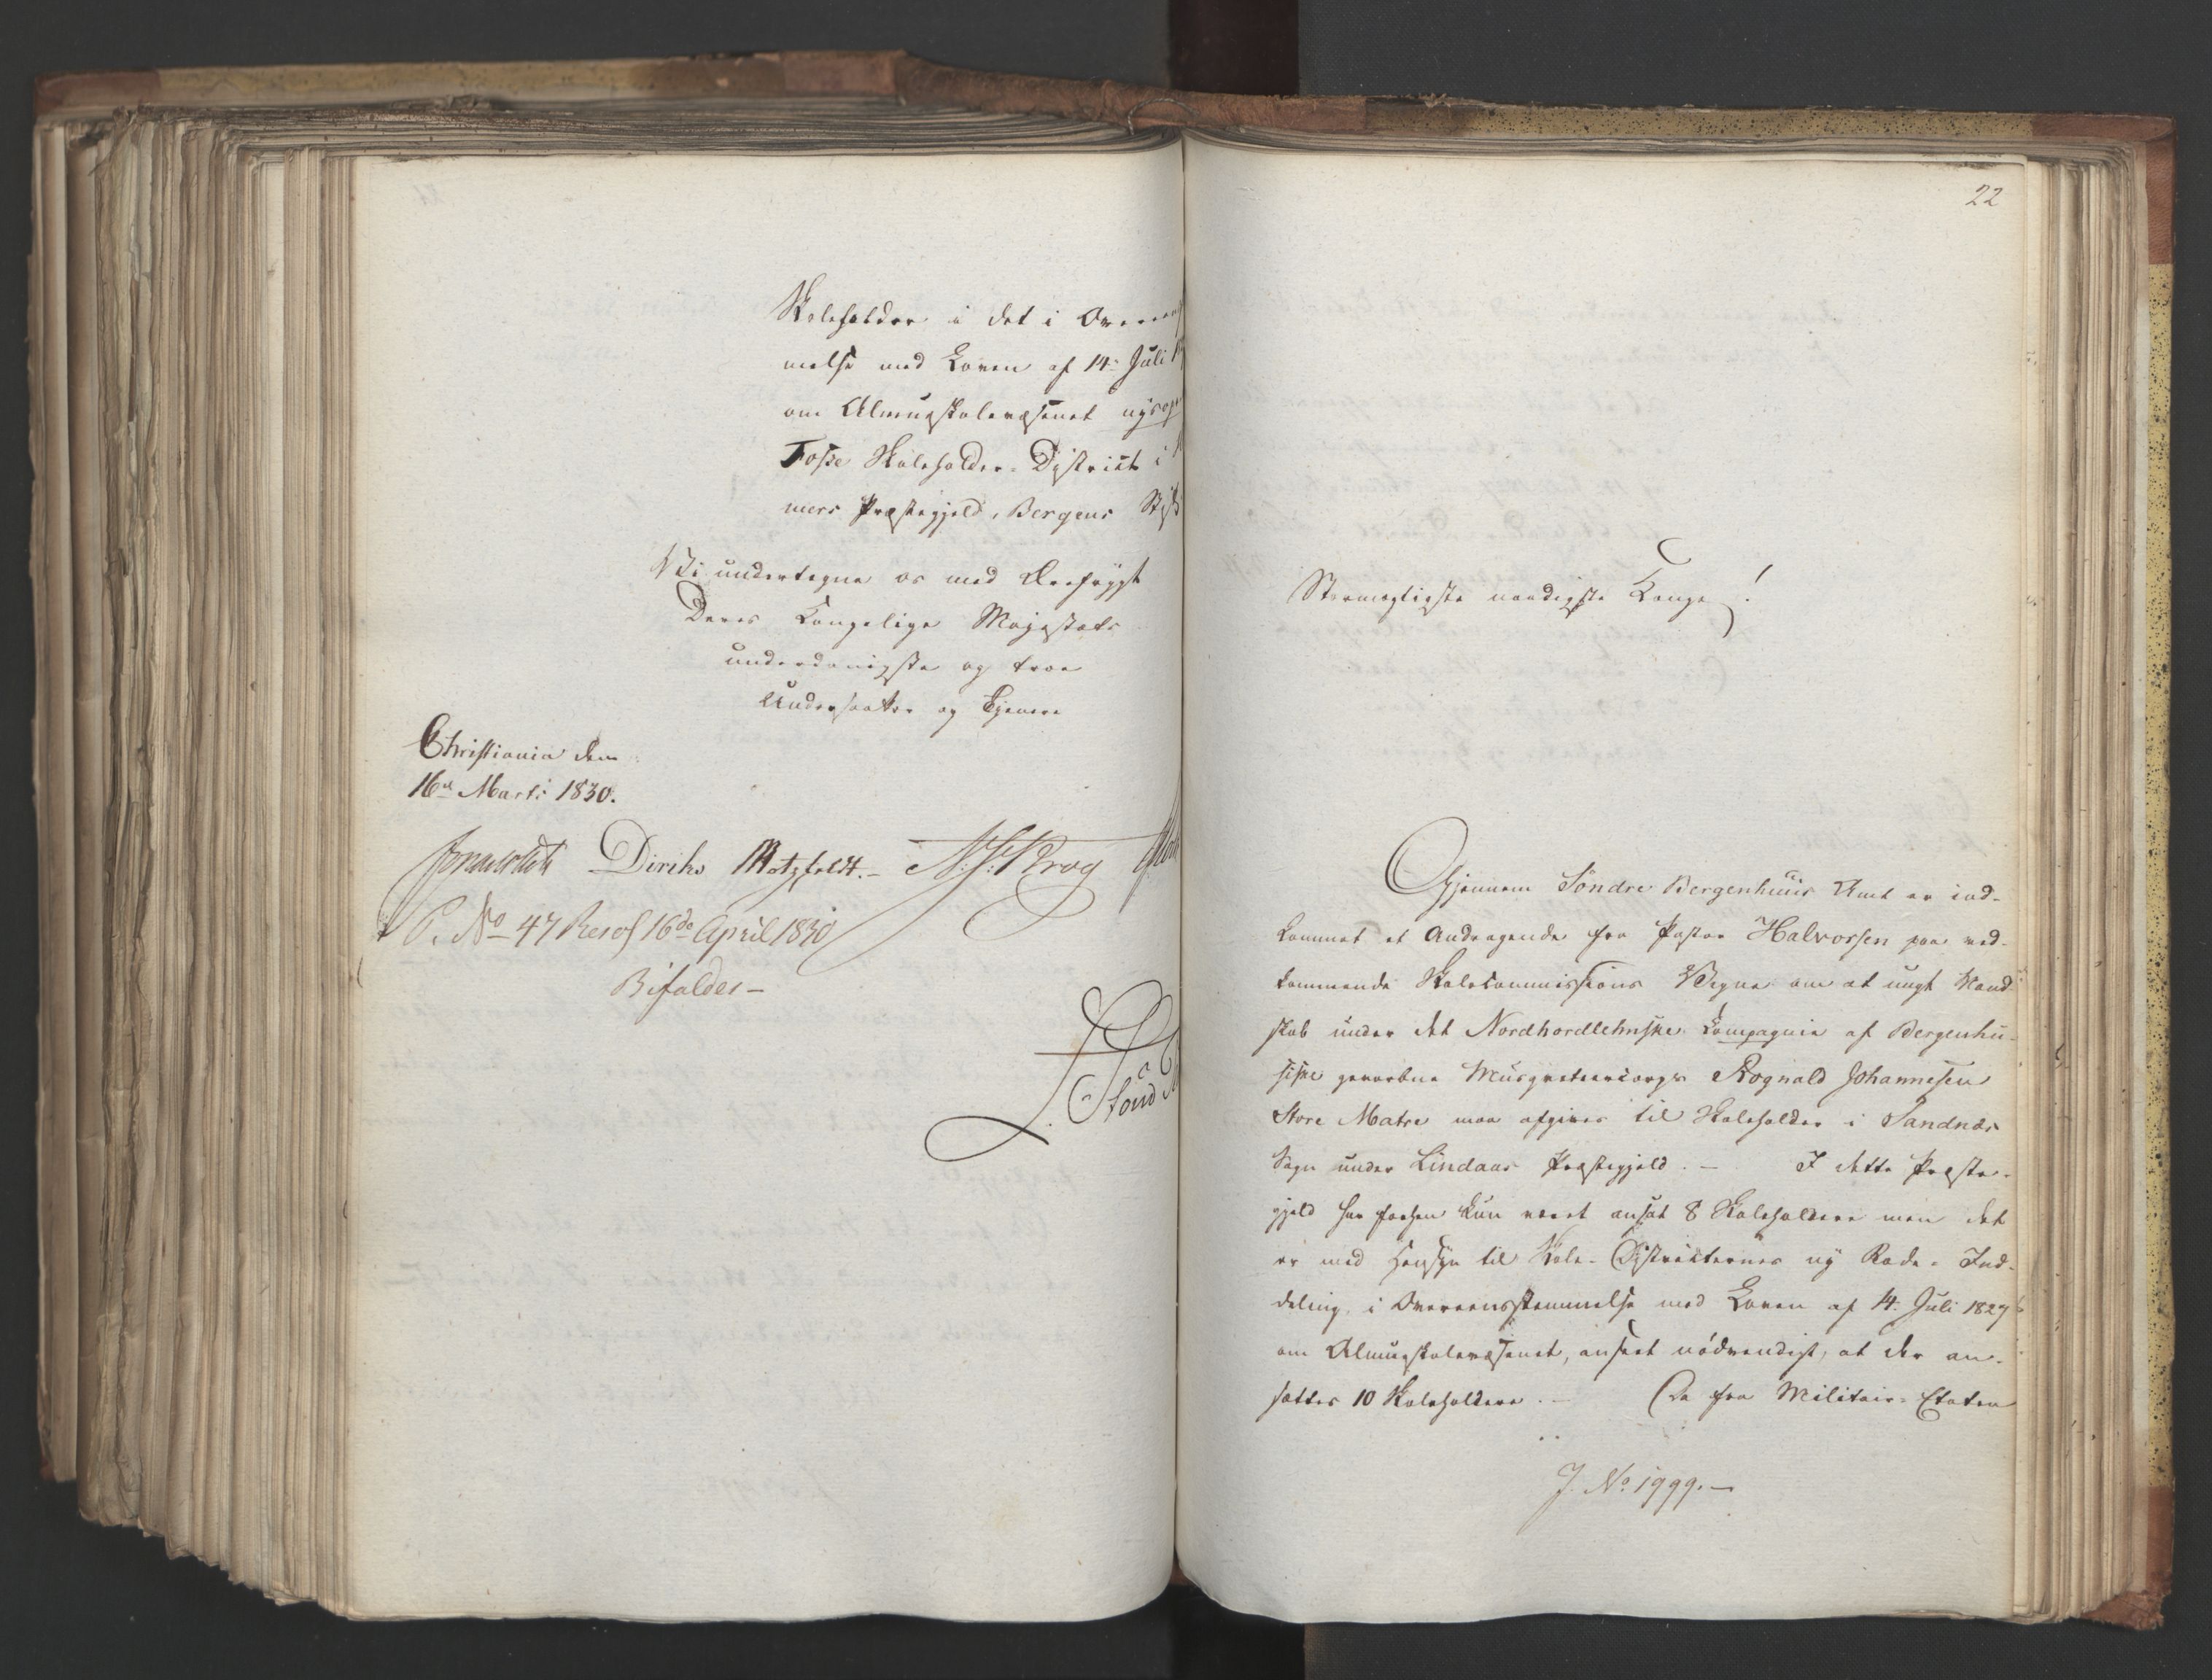 Skoleholder i det i Overeens
melse med Loven af 14 Juli
om Almueskolevæsenet nys
Fosse Skoleholder-District i
mers Præstegjeld, Bergens Stift
Vi undertegne os med Ærefrygt
Deres Kongelige Majestæts
underdanigste og troe
Undersaatter og Tjenere
Christiania den
16de Marts 1830.
Diriks Motzfeldt.- Krog
P. No 47 Resol 16de April 1830
Bifaldes-
22
Stormægtigste naadigste Konge!
Gjennem Søndre Bergenhuus Amt er ind-
kommet et Andragende fra Pastor Halvorsen paa ved-
kommende Skolecommissions Vegne om at ungt Mand-
skab under det Nordhordlehnske Compagnie af Bergenhu-
siske gevorbne Musqueteercorps Rognald Johannesen
Store Matre maa afgives til Skoleholder i Sandnæs
Sogn under Lindaas Præstegjeld. - I dette Præste-
gjeld har forhen kun været ansat 8 Skoleholdere men det
er med Hensyn til Skole-Districternes ny Rode-Ind-
deling, i Overeensstemmelse med Loven af 14 Juli 1827
om Almueskolevæsenet, anseet nödvendigt, at der an-
sættes 10 Skoleholdere. - Da fra Militair-Etaten
J. No 1999.-